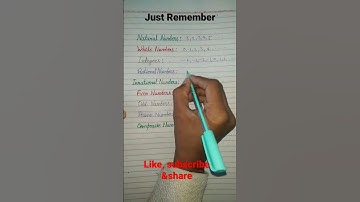 Just Remember
Natural Numbers:
Whole Numbers:
Integers:
Rational Numbers:
Irrational Numbers:
Even Numbers:
Odd Numbers:
Prime Numbers:
Composite
Like, subscribe
&share